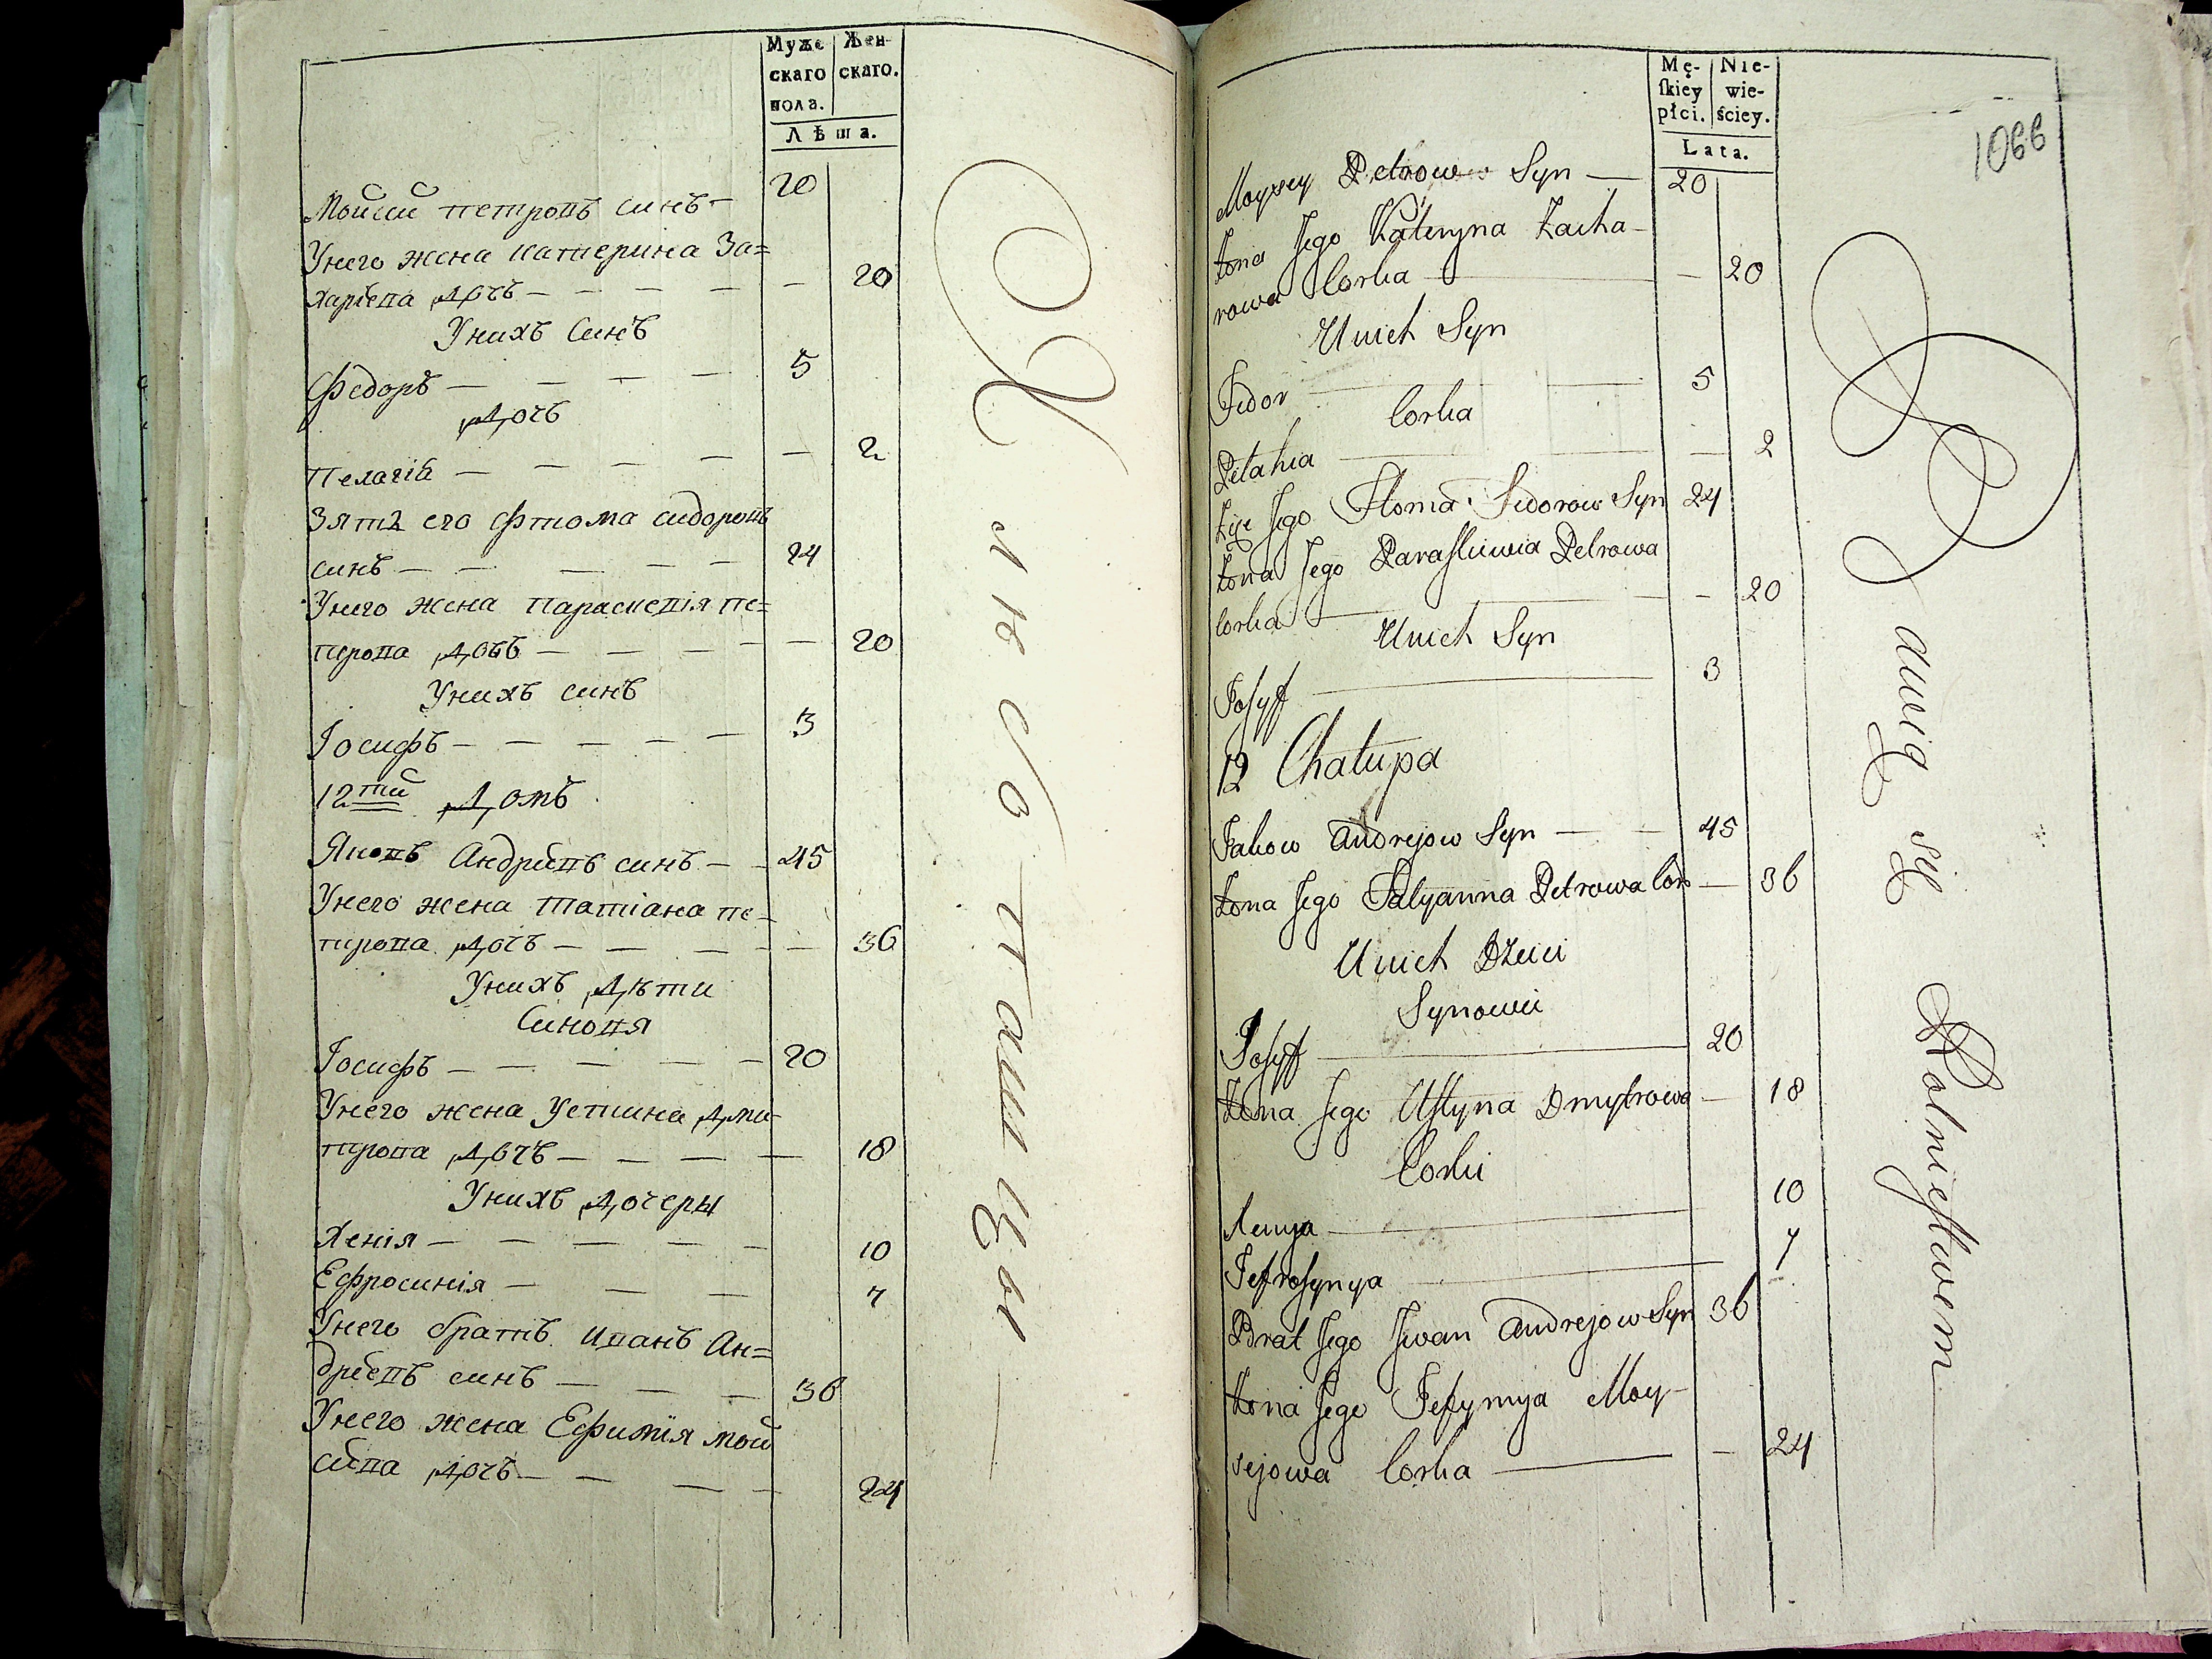 Муже
скаго
пола.
Жен-
скаго.
Лѣта.
Мойсій петровъ синъ — 20
Унего жена катерина За=
харіева дочъ — — — — — 20
Унихъ Синъ
Федоръ — — — — 5
дочъ
Пелагія — — — — — 2
Зять его Фтома сидоровъ
синъ — — — — — 24
Унего жена параскевія пе=
трова дочъ — — — — — 20
Унихъ синъ
Іосифъ — — — — — 3
12тий Домъ
Яковъ Андріевъ синъ — — 45
Унего жена татіана пе-
трова дочъ — — — — — 36
Унихъ дѣти
Синовя
Іосифъ — — — — — 20
Унего жена Устина дми-
трова дочъ — — — — 18
Унихъ дочеры
Хенія — — — — — — 10
Ефросинія — — — 7
Унего братъ иванъ Ан=
дріевъ синъ — — — 36
Унего жена Ефимія мой
сіева дочъ — — — — 24
Mę-
ſkiey
płci.
Nie-
wie-
ściey.
Lata.
1066
Moysey Petrow Syn — 20
Żona Jego Kateryna Zacha-
rowa Corka — — 20
Unich Syn
Fedor — 5
Corka
Pelahia — — 2
Zięć Jego Ftoma Sidorow Syn 24
Żona Jego Paraskiewia Petrowa
Corka — — 20
Unich Syn
Josyff — 3
12 Chałupa
Jakow Andrejow Syn — — 45
Żona Jego Tatyanna Petrowa Cor — 36
Unich Dzieci
Synowie
Josyff — 20
Żona Jego Ustyna Dmytrowa — 18
Corki
Xenya — 10
Jefrosynya — 7
Brat Jego Iwan Andrejow Syn 36
Żona Jego Jefymya Moy-
sejowa Corka — — 24
Bawią się Rolnictwem